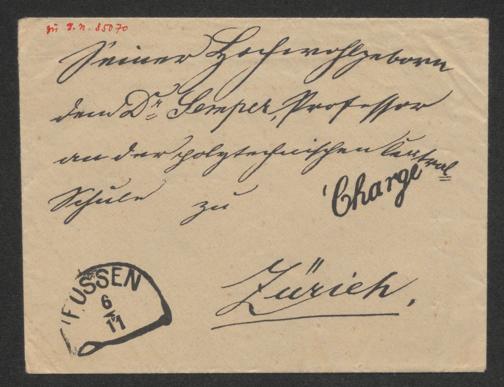 zu I.N. 85070
Seiner Hochwohlgeborn
dem Dr. Semper, Professor
an der polytechnischen Central
Schule zu
Chargé
Zürich.
FÜSSEN
6
11